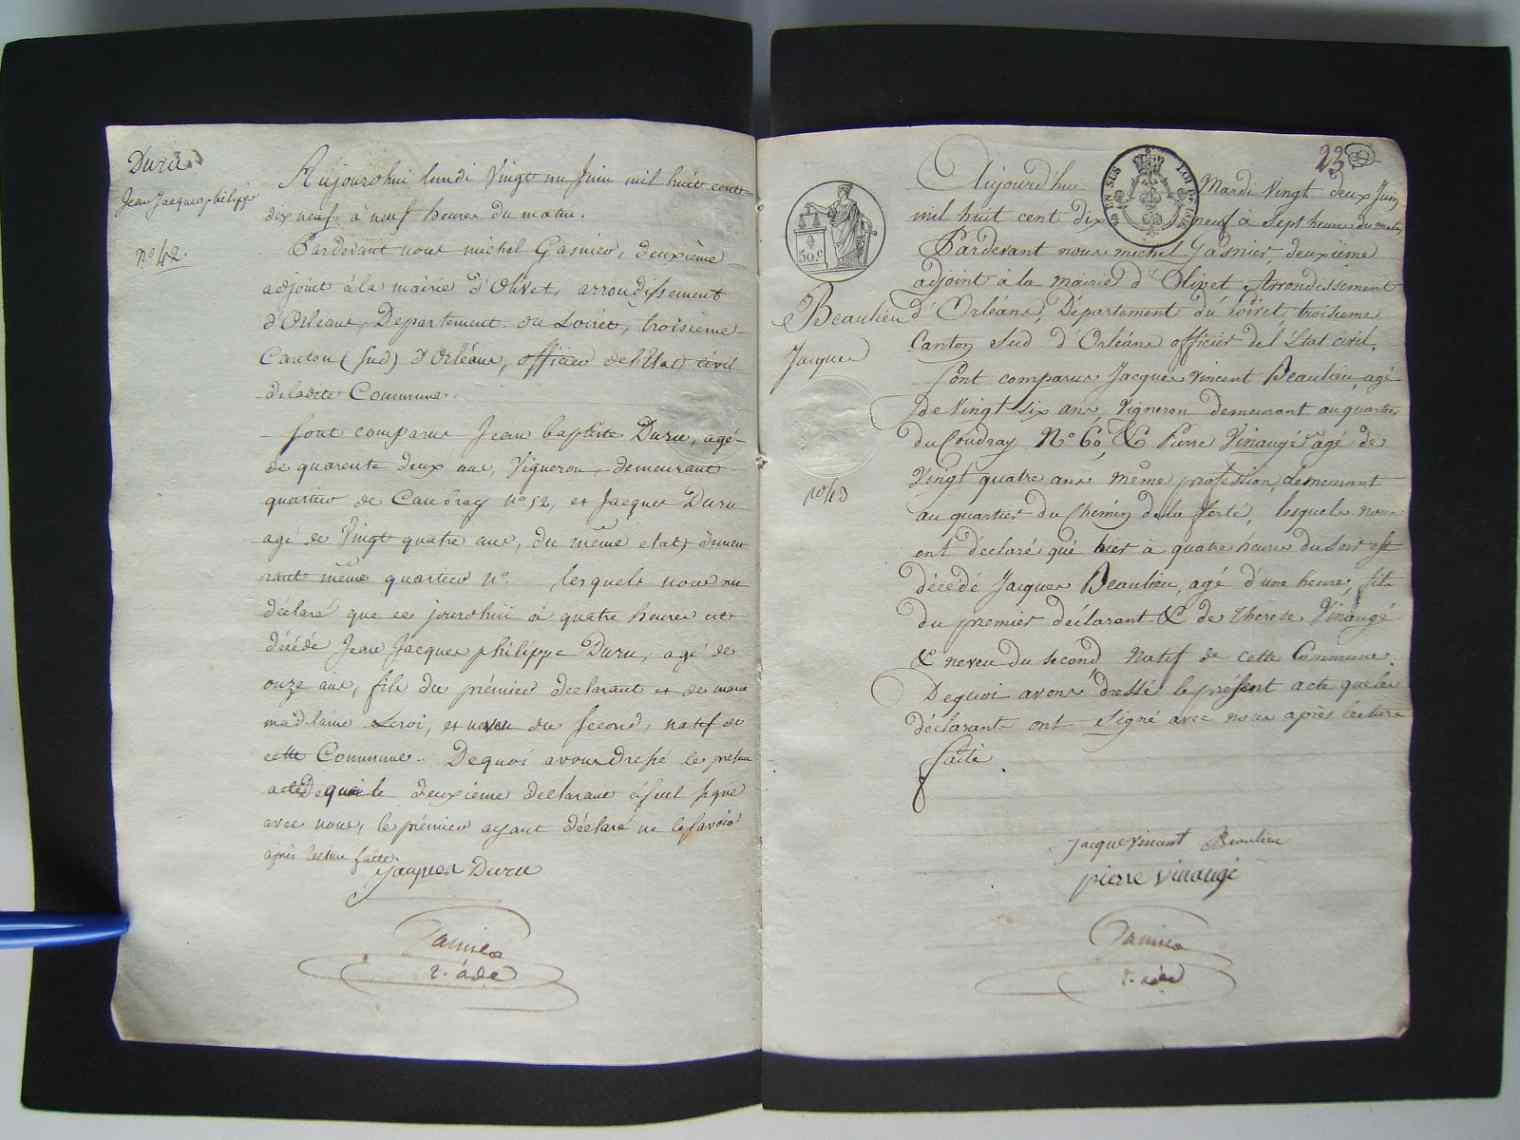 Duru
Jean Jacques philippe
n° 42.
Aujourdhui lundi Vingt un Juin mil huit cent
dix neuf à neuf heures du matin.
Pardevant nous michel Gasnier, deuxième
adjoint à la mairie d'Olivet, arrondissement
d'Orléans, Département du Loiret, troisième
Canton (Sud) d'Orléans, officier de l'Etat civil
de ladite Commune.
Sont comparus Jean baptiste Duru, agé
de quarente deux ans, Vigneron, demeurant
quartier de Caudray n° 52, et Jacques Duru
agé de Vingt quatre ans, du même etat, demeu
rant même quartier n° lesquels nous on
déclaré que ce jourdhui à quatre heures est
décédé Jean Jacques philippe Duru, agé de
onze ans, fils du prémier declarant et de marie
madelaine Leroi, et neveu du second, natif de
cette Commune. Dequoi avons dressé le présent
acte De quoi le deuxième declarant à seul signé
avec nous, le prémier ayant déclaré ne le savoir
après lecture faite.
Jacques Duru
Gasnier
2. ad
23
LOI DE 1816
EN SUS
50 c
Beaulieu
Jacques
n° 43
Aujourd'hui Mardi Vingt deux Juin
mil huit cent dix neuf à Sept heures du matin
Pardevant nous michel Gasnier, deuxième
adjoint à la mairie d'Olivet Arrondissement
d'Orléans, Département du Loiret, troisieme
Canton Sud d'Orléans officier de l'Etat civil.
Sont comparus Jacques Vincent Beaulieu, agé
de Vingt six ans, Vigneron demeurant au quartier
du Coudray N° 60, & Pierre Vinaugé agé de
Vingt quatre ans même profession, demeurant
au quartier du Chemin de la ferté, lesquels nous
ont déclaré que hier à quatre heures du soir est
décédé Jacques Beaulieu, agé d'une heure, fils
du premier déclarant & de Therese Vinaugé
& neveu du second, Natif de cette Commune.
Dequoi avons dressé le présent acte que les
déclarants ont Signé avec nous après lecture
faite
jacque vincent Beaulieu
pierre vinaugé
Gasnier
2. ad